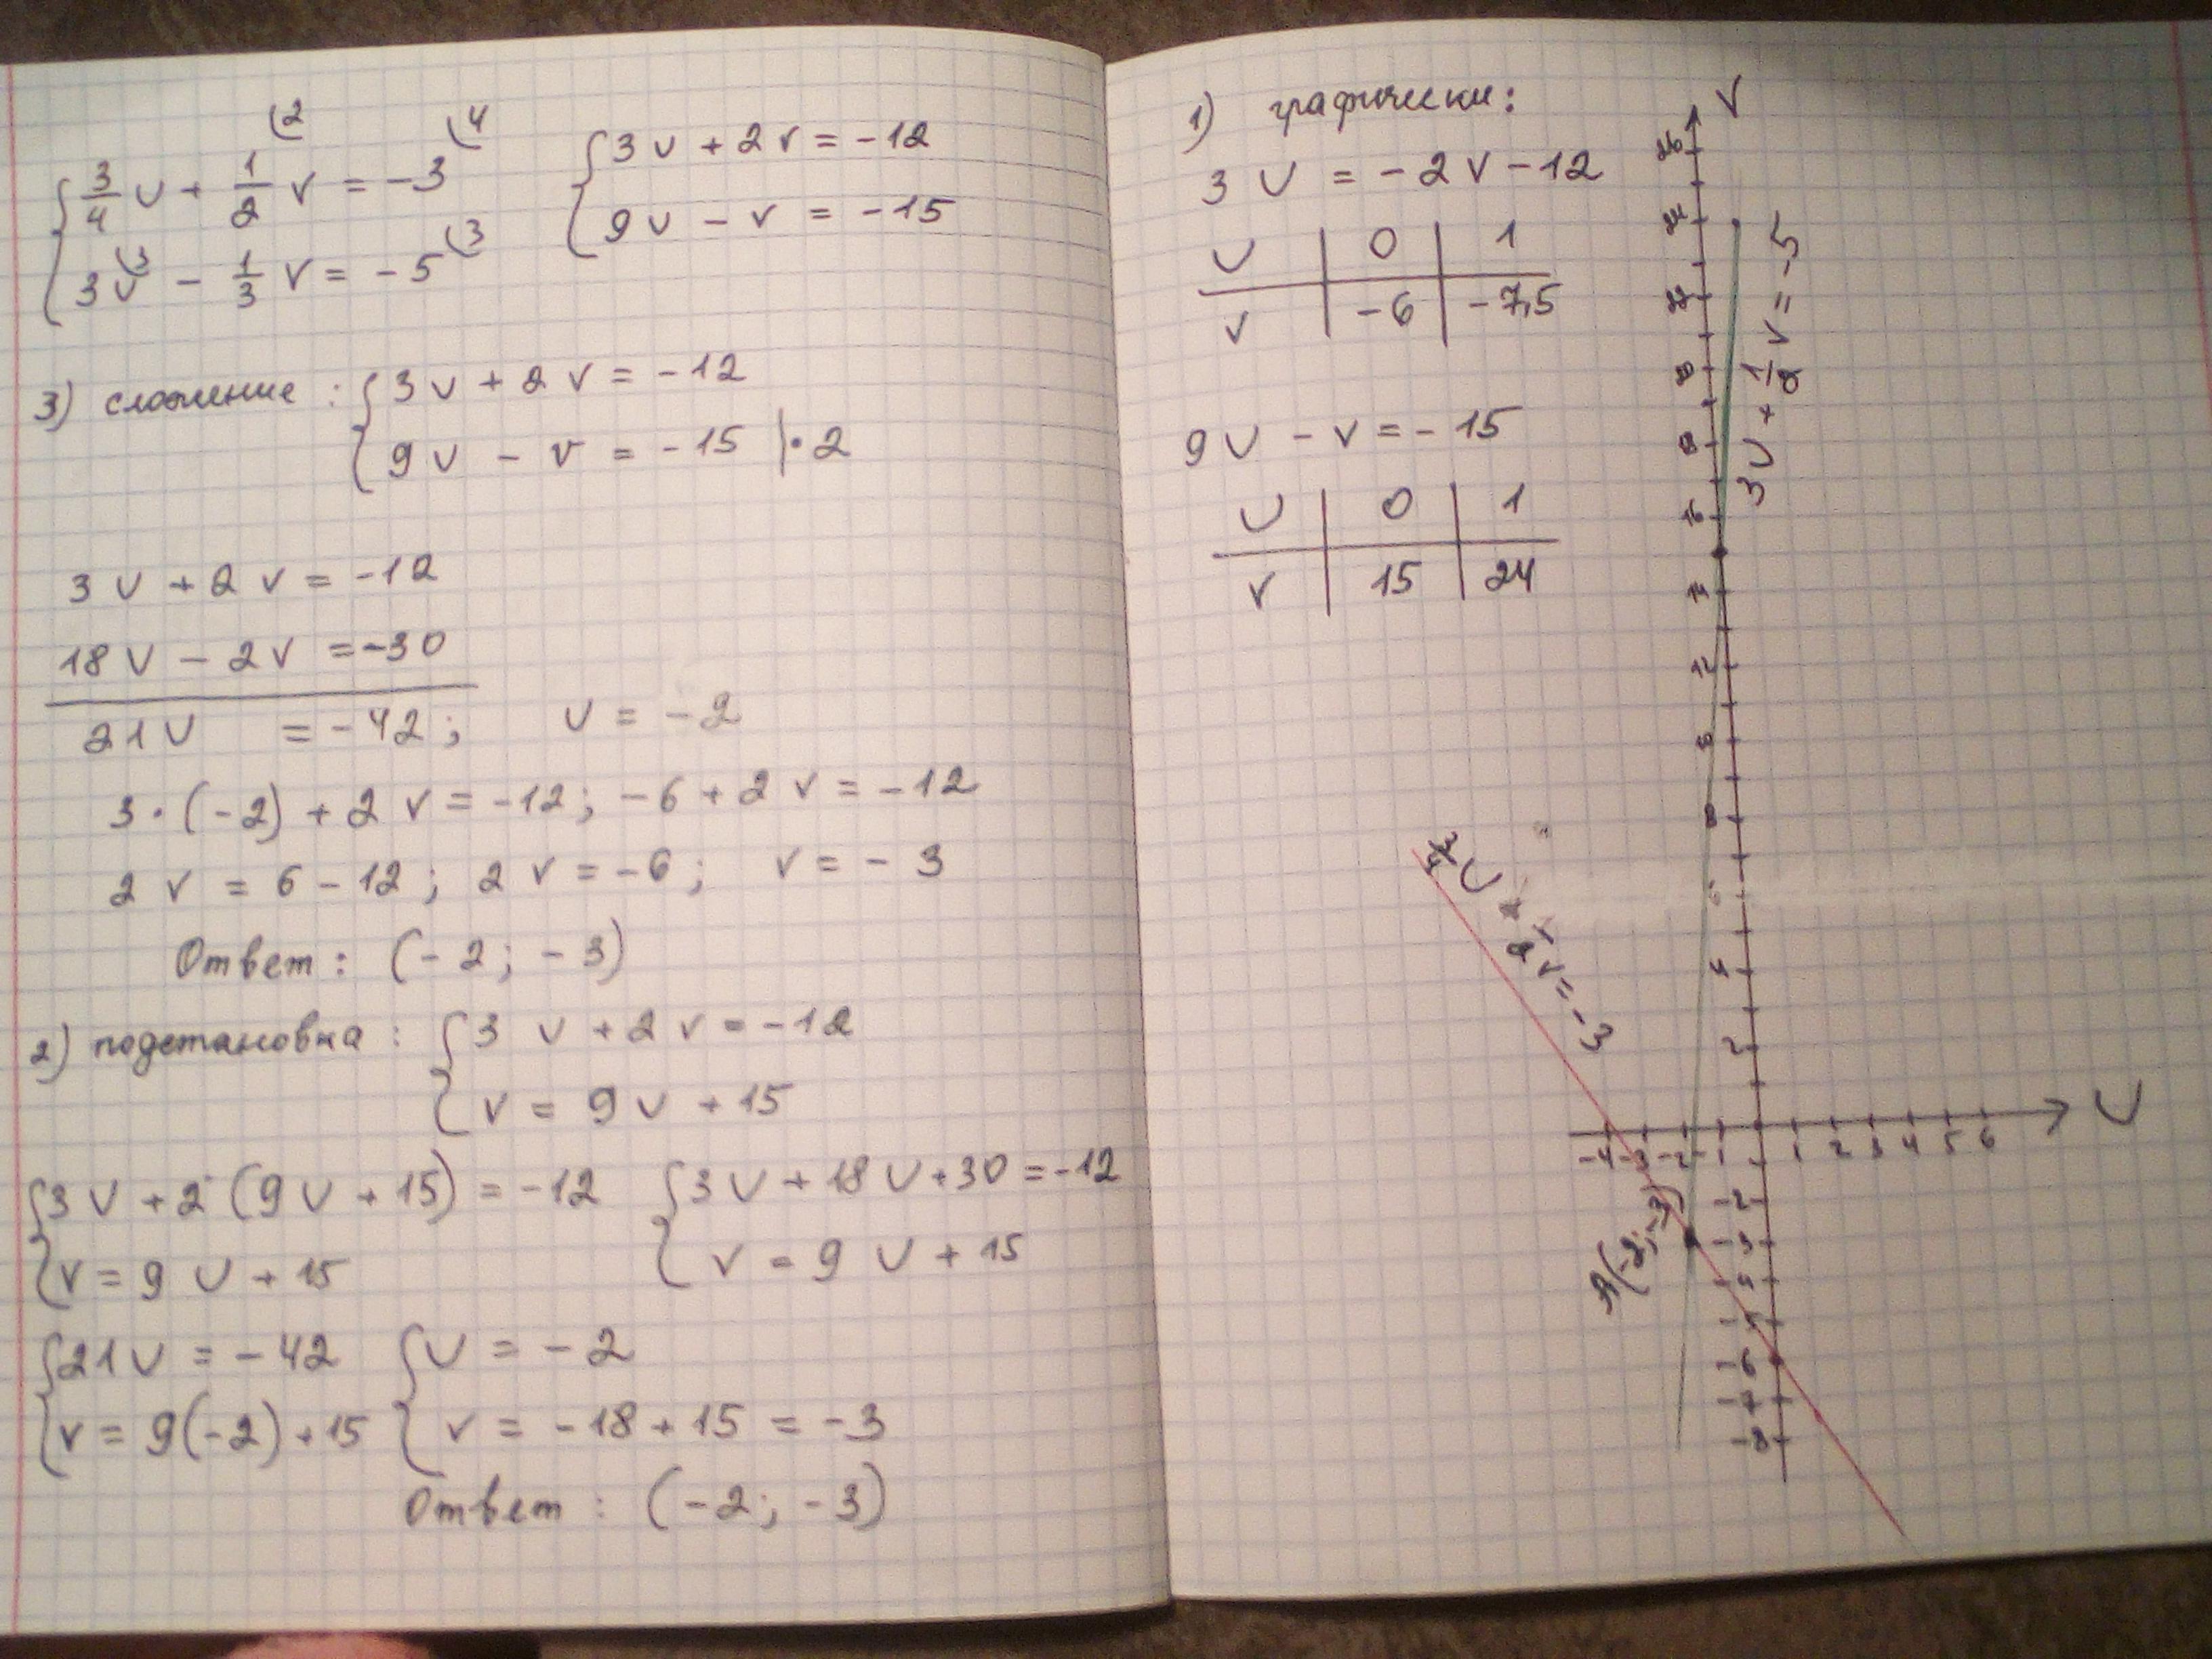 { 3/4 U + 1/2 (2 V = -3 (4
{ 3U (3 - 1/3 V = -5 (3
{ 3U + 2V = -12
{ 9U - V = -15
3) сложение : { 3U + 2V = -12
{ 9U - V = -15 | · 2
3U + 2V = -12
18U - 2V = -30
21U = -42; U = -2
3 · (-2) + 2V = -12; -6 + 2V = -12
2V = 6 - 12; 2V = -6; V = -3
Ответ: (-2; -3)
2) подстановка : { 3U + 2V = -12
{ V = 9U + 15
{ 3U + 2(9U + 15) = -12 { 3U + 18U + 30 = -12
{ V = 9U + 15 { V = 9U + 15
{ 21U = -42 { U = -2
{ V = 9(-2) + 15 { V = -18 + 15 = -3
Ответ : (-2; -3)
1) графически:
3U = -2V - 12
U | 0 | 1
V | -6 | -7,5
9U - V = -15
U | 0 | 1
V | 15 | 24
V
3U + 1/2 V = -5
16
14
12
8
4
2
-4 -3 -2 -1 1 2 3 4 5 6
U
-2
-3
-6
A(-2; -3)